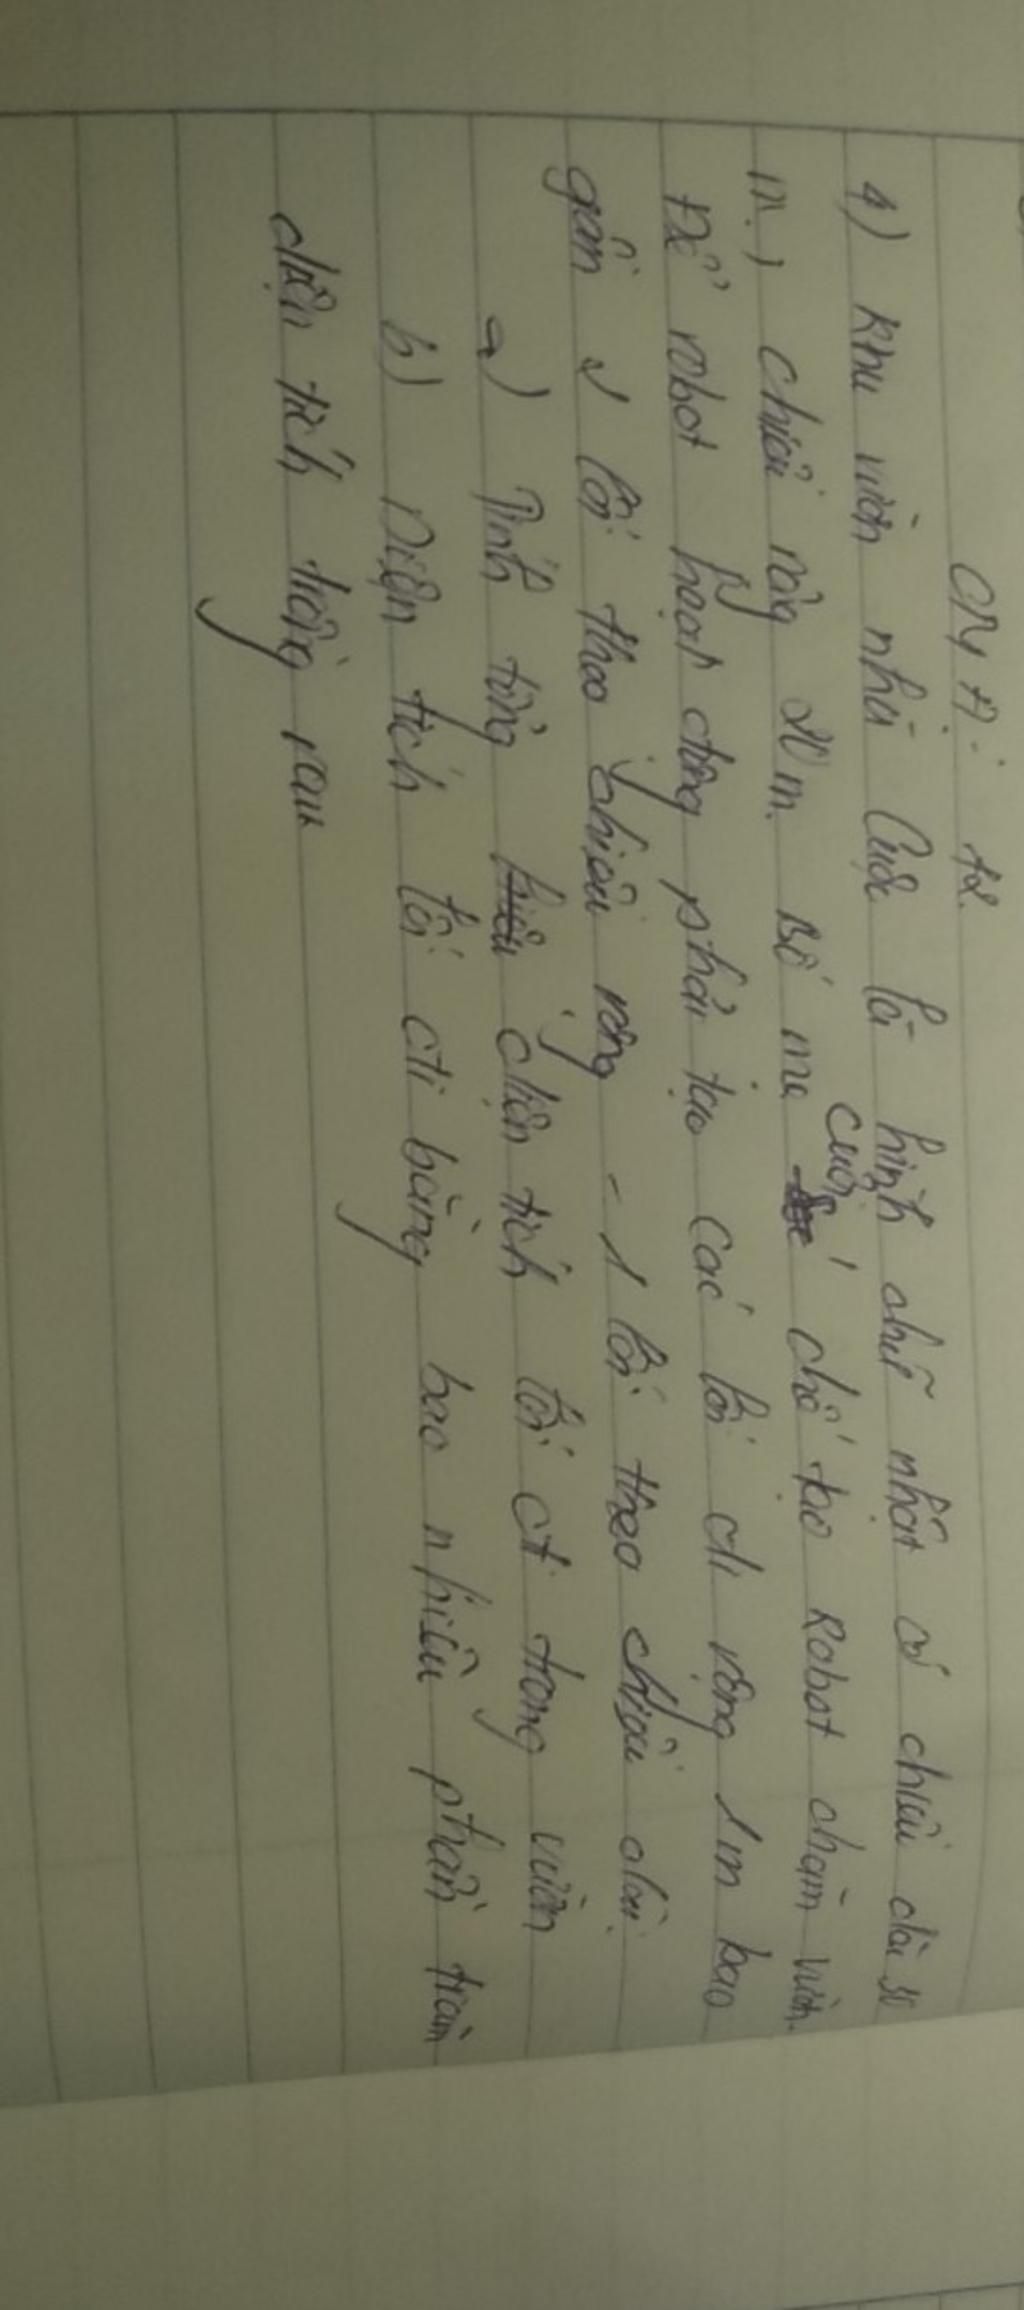 4) Khu vườn nhà Cuội là hình chữ nhật có chiều dài
m, chiều rộng 20 m. Bố mẹ cuội chế tạo Robot chăm vườn.
Để robot hoạt động phải tạo các lối đi rộng 1m bao
gồm lối theo chiều rộng - 1 lối theo chiều dài.
a) Tính tổng diện tích lối đi trong vườn
b) Diện tích lối đi bằng bao nhiêu phần trăm
diện tích trồng rau